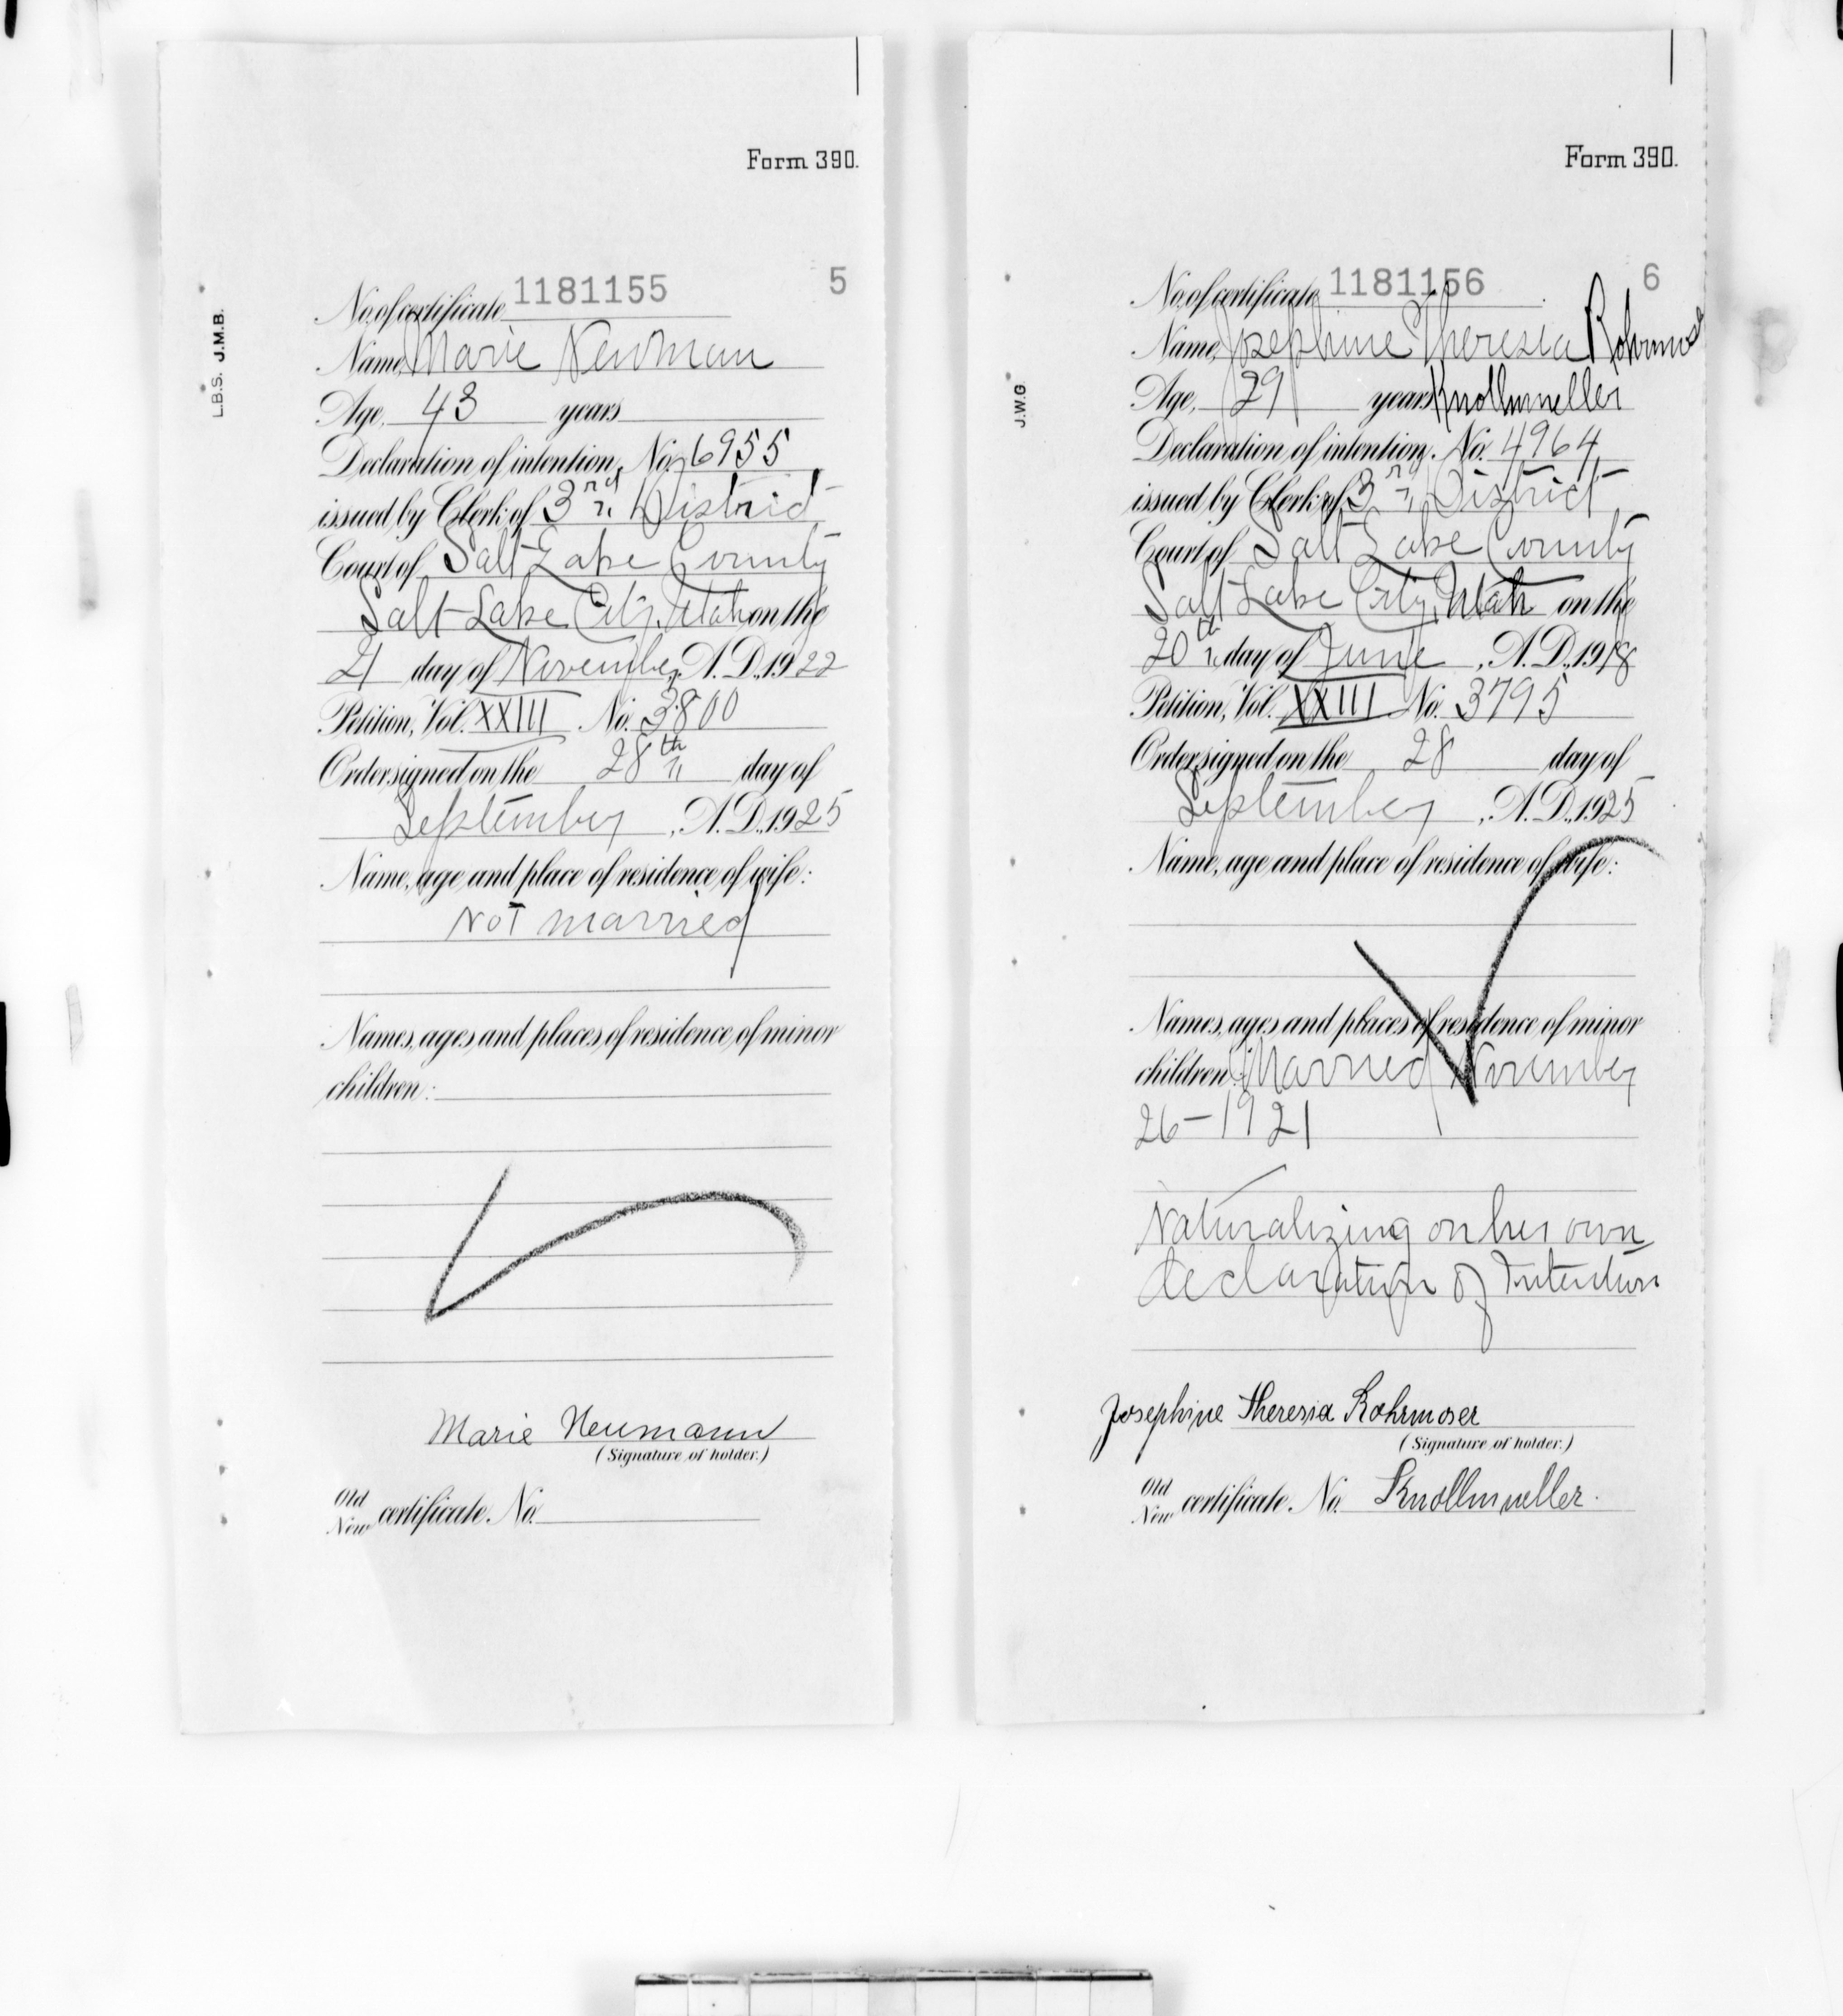 Form 390.
5
L.B.S. J.M.B.
No. of certificate 1181155
Name, Marie Newman
Age, 43 years
Declaration of intention, No. 6955
issued by Clerk of 3rd District
Court of Salt Lake County
Salt Lake City, Utah on the
21 day of November, A.D., 1922
Petition, Vol. XXIII No. 3800
Order signed on the 28th day of
September, A.D., 1925
Name, age and place of residence of wife:
Not married
Names, ages and places of residence of minor
children:
Marie Neumann
(Signature of holder.)
Old
New certificate No.
Form 390.
6
J.W.G
No. of certificate 1181156
Name, Josephine Theresia Rohrmose
Age, 29 years Knollmueller
Declaration of intention, No. 4964
issued by Clerk of 3rd District
Court of Salt Lake County
Salt Lake City, Utah on the
20th day of June, A.D., 1918
Petition, Vol. XXIII No. 3795
Order signed on the 28 day of
September, A.D., 1925
Name, age and place of residence of wife:
Names, ages and places of residence of minor
children: Married November
26-1921
Naturalizing on her own
declaration of Intention
Josephine Theresia Rohrmoser
(Signature of holder.)
Old
New certificate No. Knollmueller.